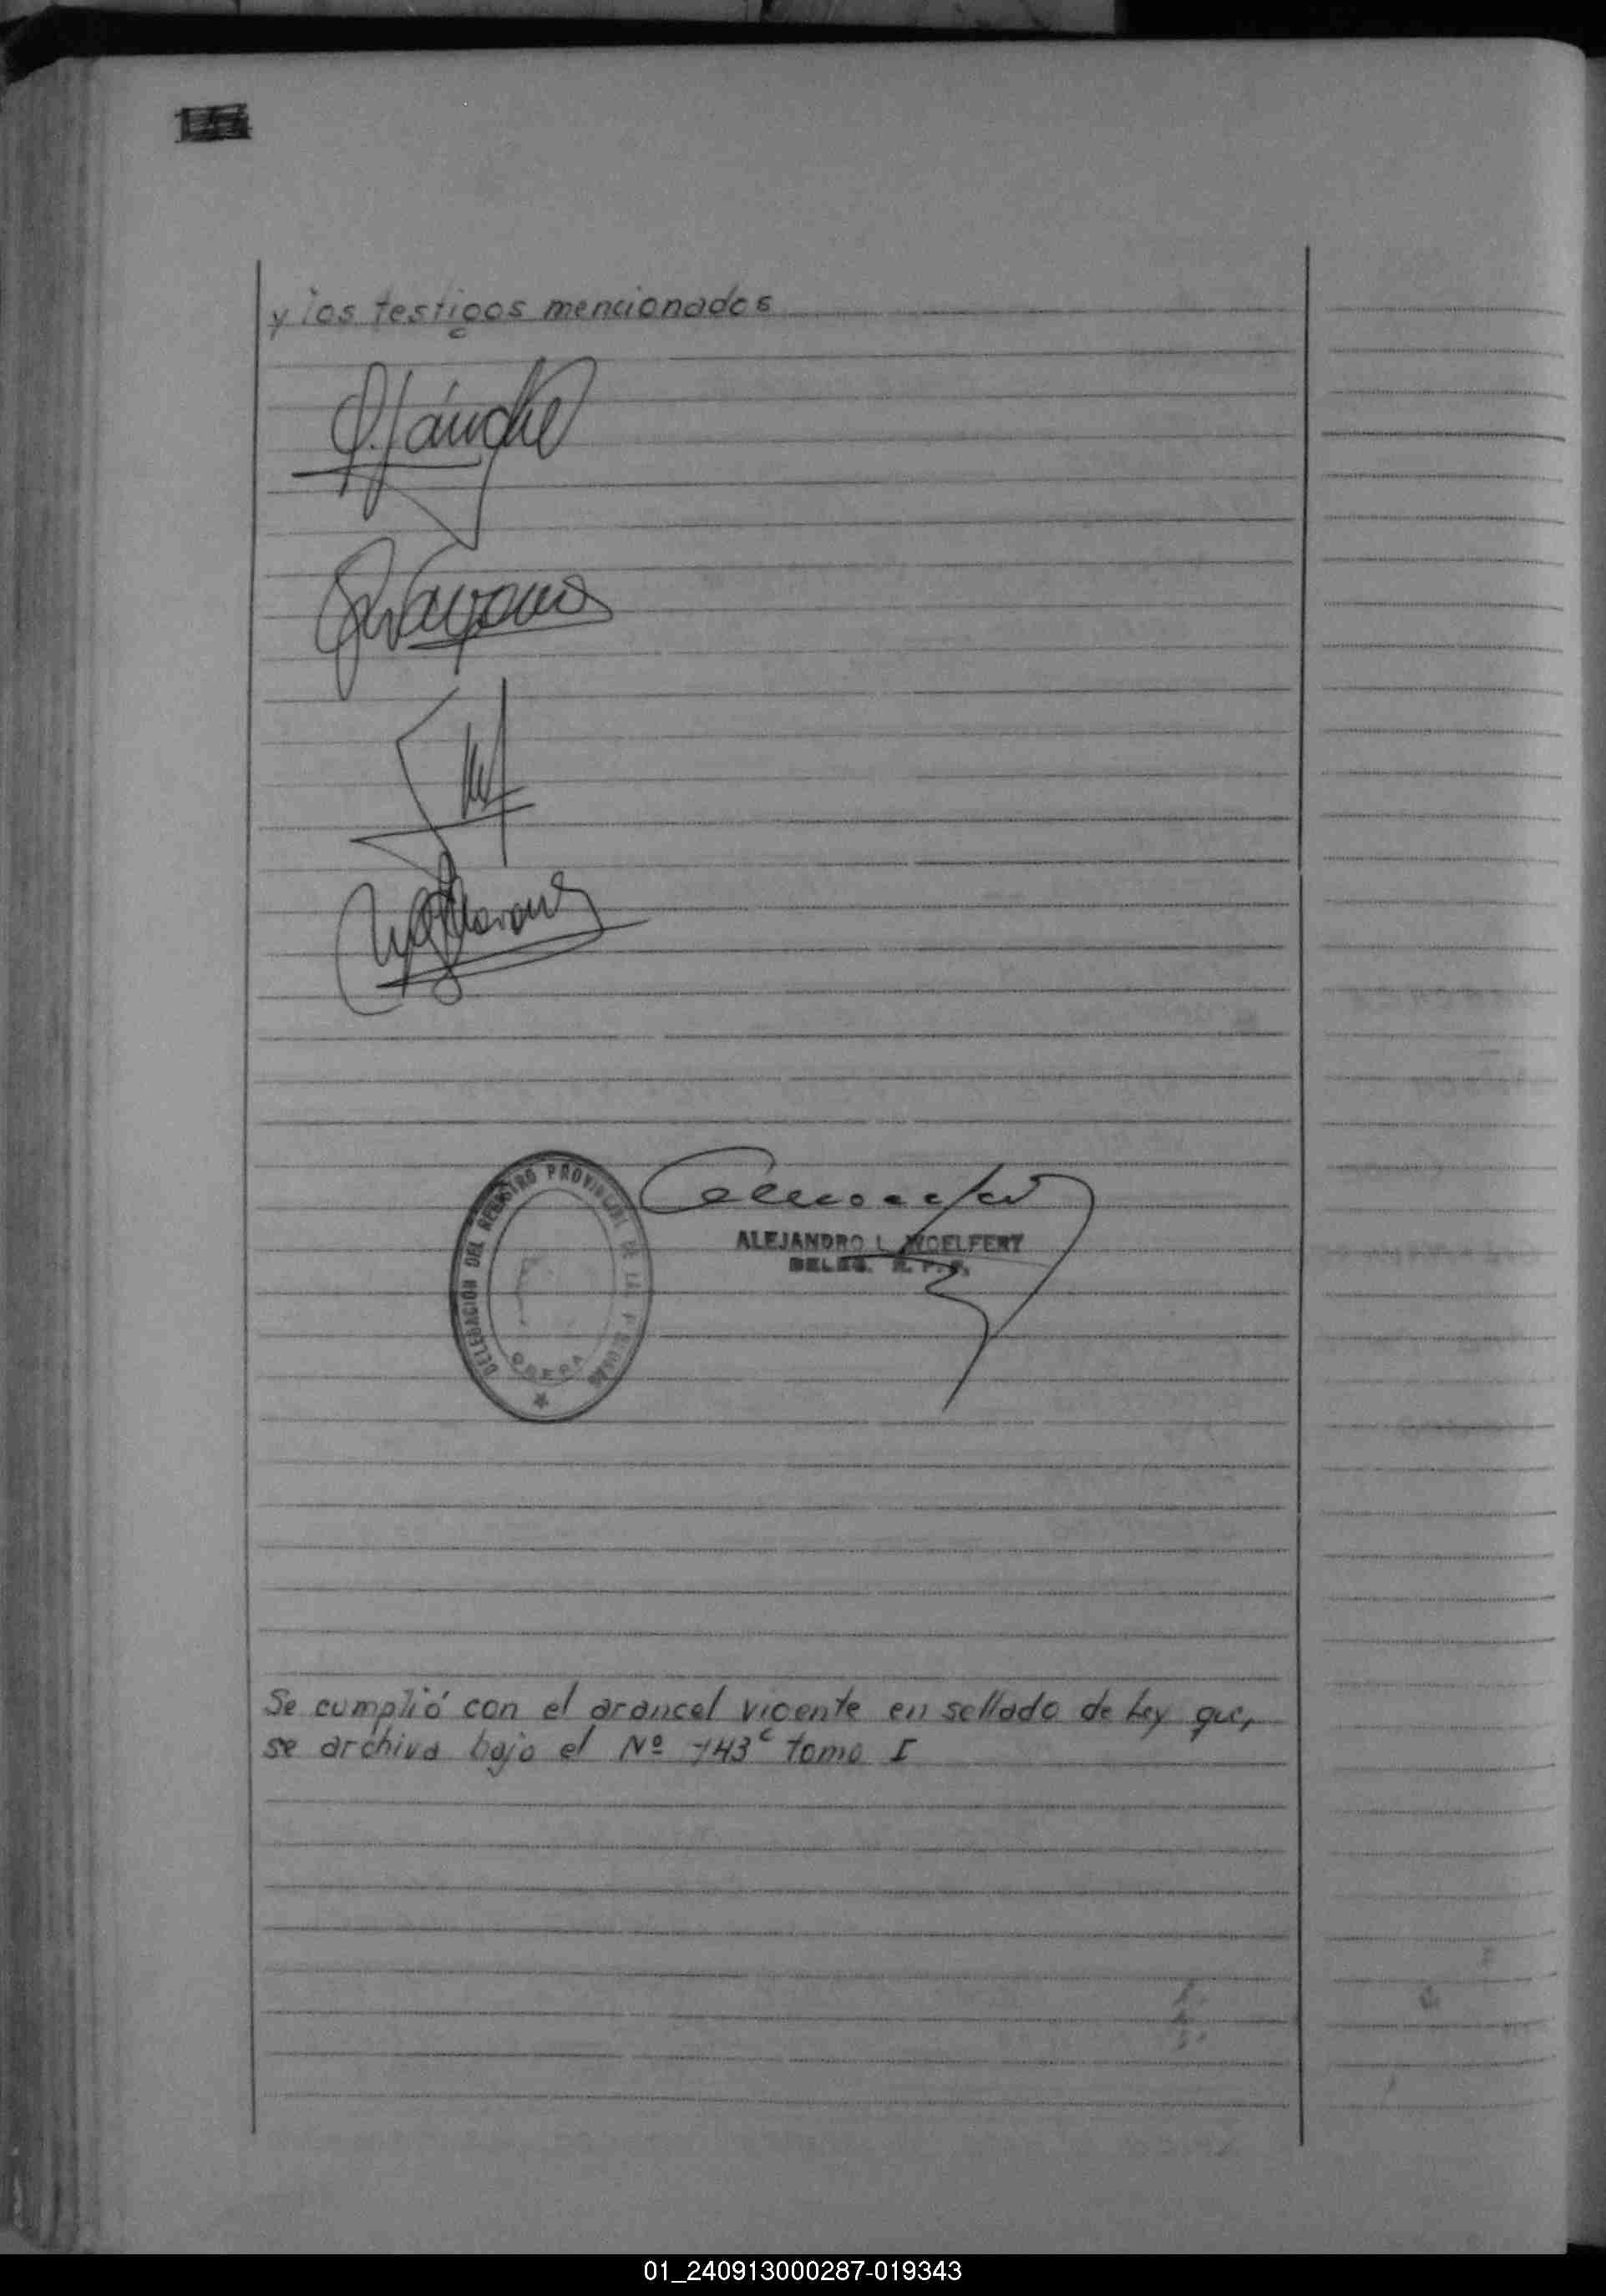 y los testigos mencionados
DELEGACION DEL REGISTRO PROVINCIAL DE LAS PERSONAS
OBERA
ALEJANDRO L. WOELFERT
DELEG. R. P. P.
Se cumplió con el arancel vigente en sellado de Ley que,
se archiva bajo el Nº 743 tomo I
01_240913000287-019343